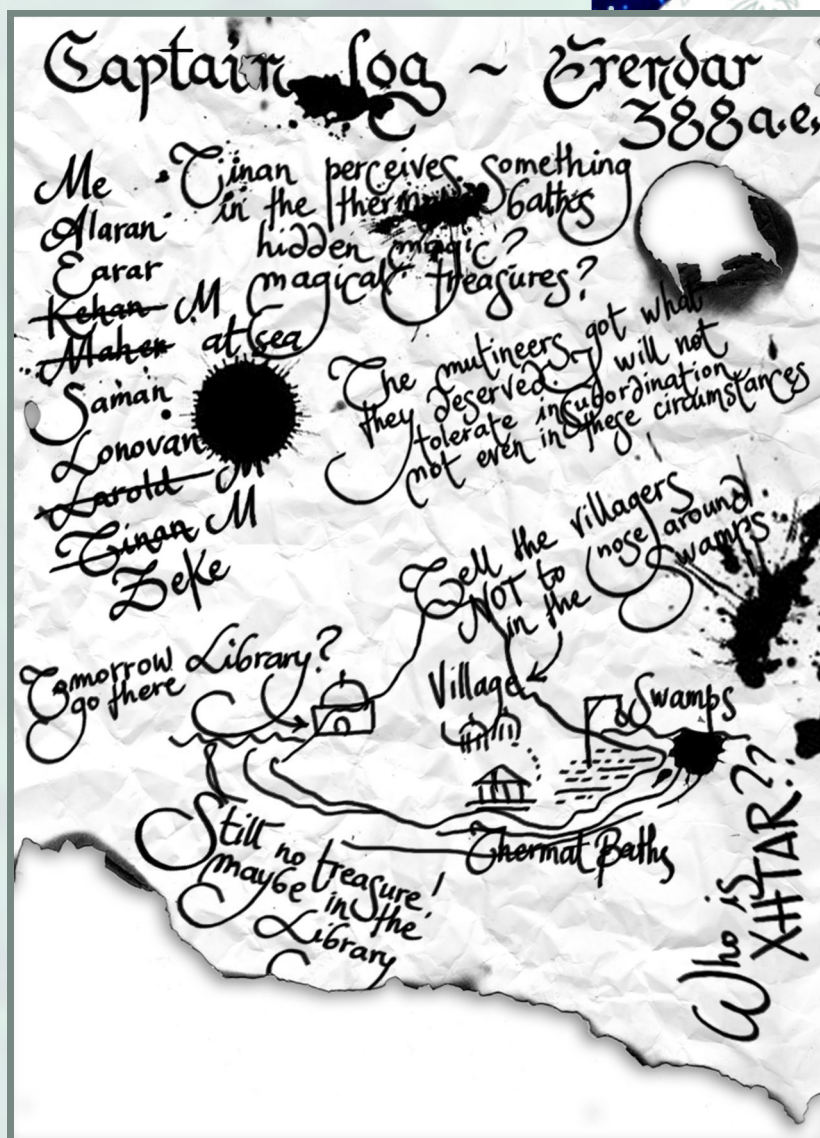 Captain Log ~ Erendar
388 a.e.
Me
Alaran
Earar
Kehan M
Maher at sea
Saman
Lonovan
Larold M
Tinan M
Zeke
Tinan perceives something
in the thermal baths
hidden magic?
magical treasures?
The mutineers got what
they deserved. I will not
tolerate insubordination
not even in these circumstances
Tell the villagers
NOT to nose around
in the Swamps
Tomorrow Library?
go there
Village
Swamps
Thermal Baths
Still no treasure!
maybe in the
Library
Who is
XHTAR??